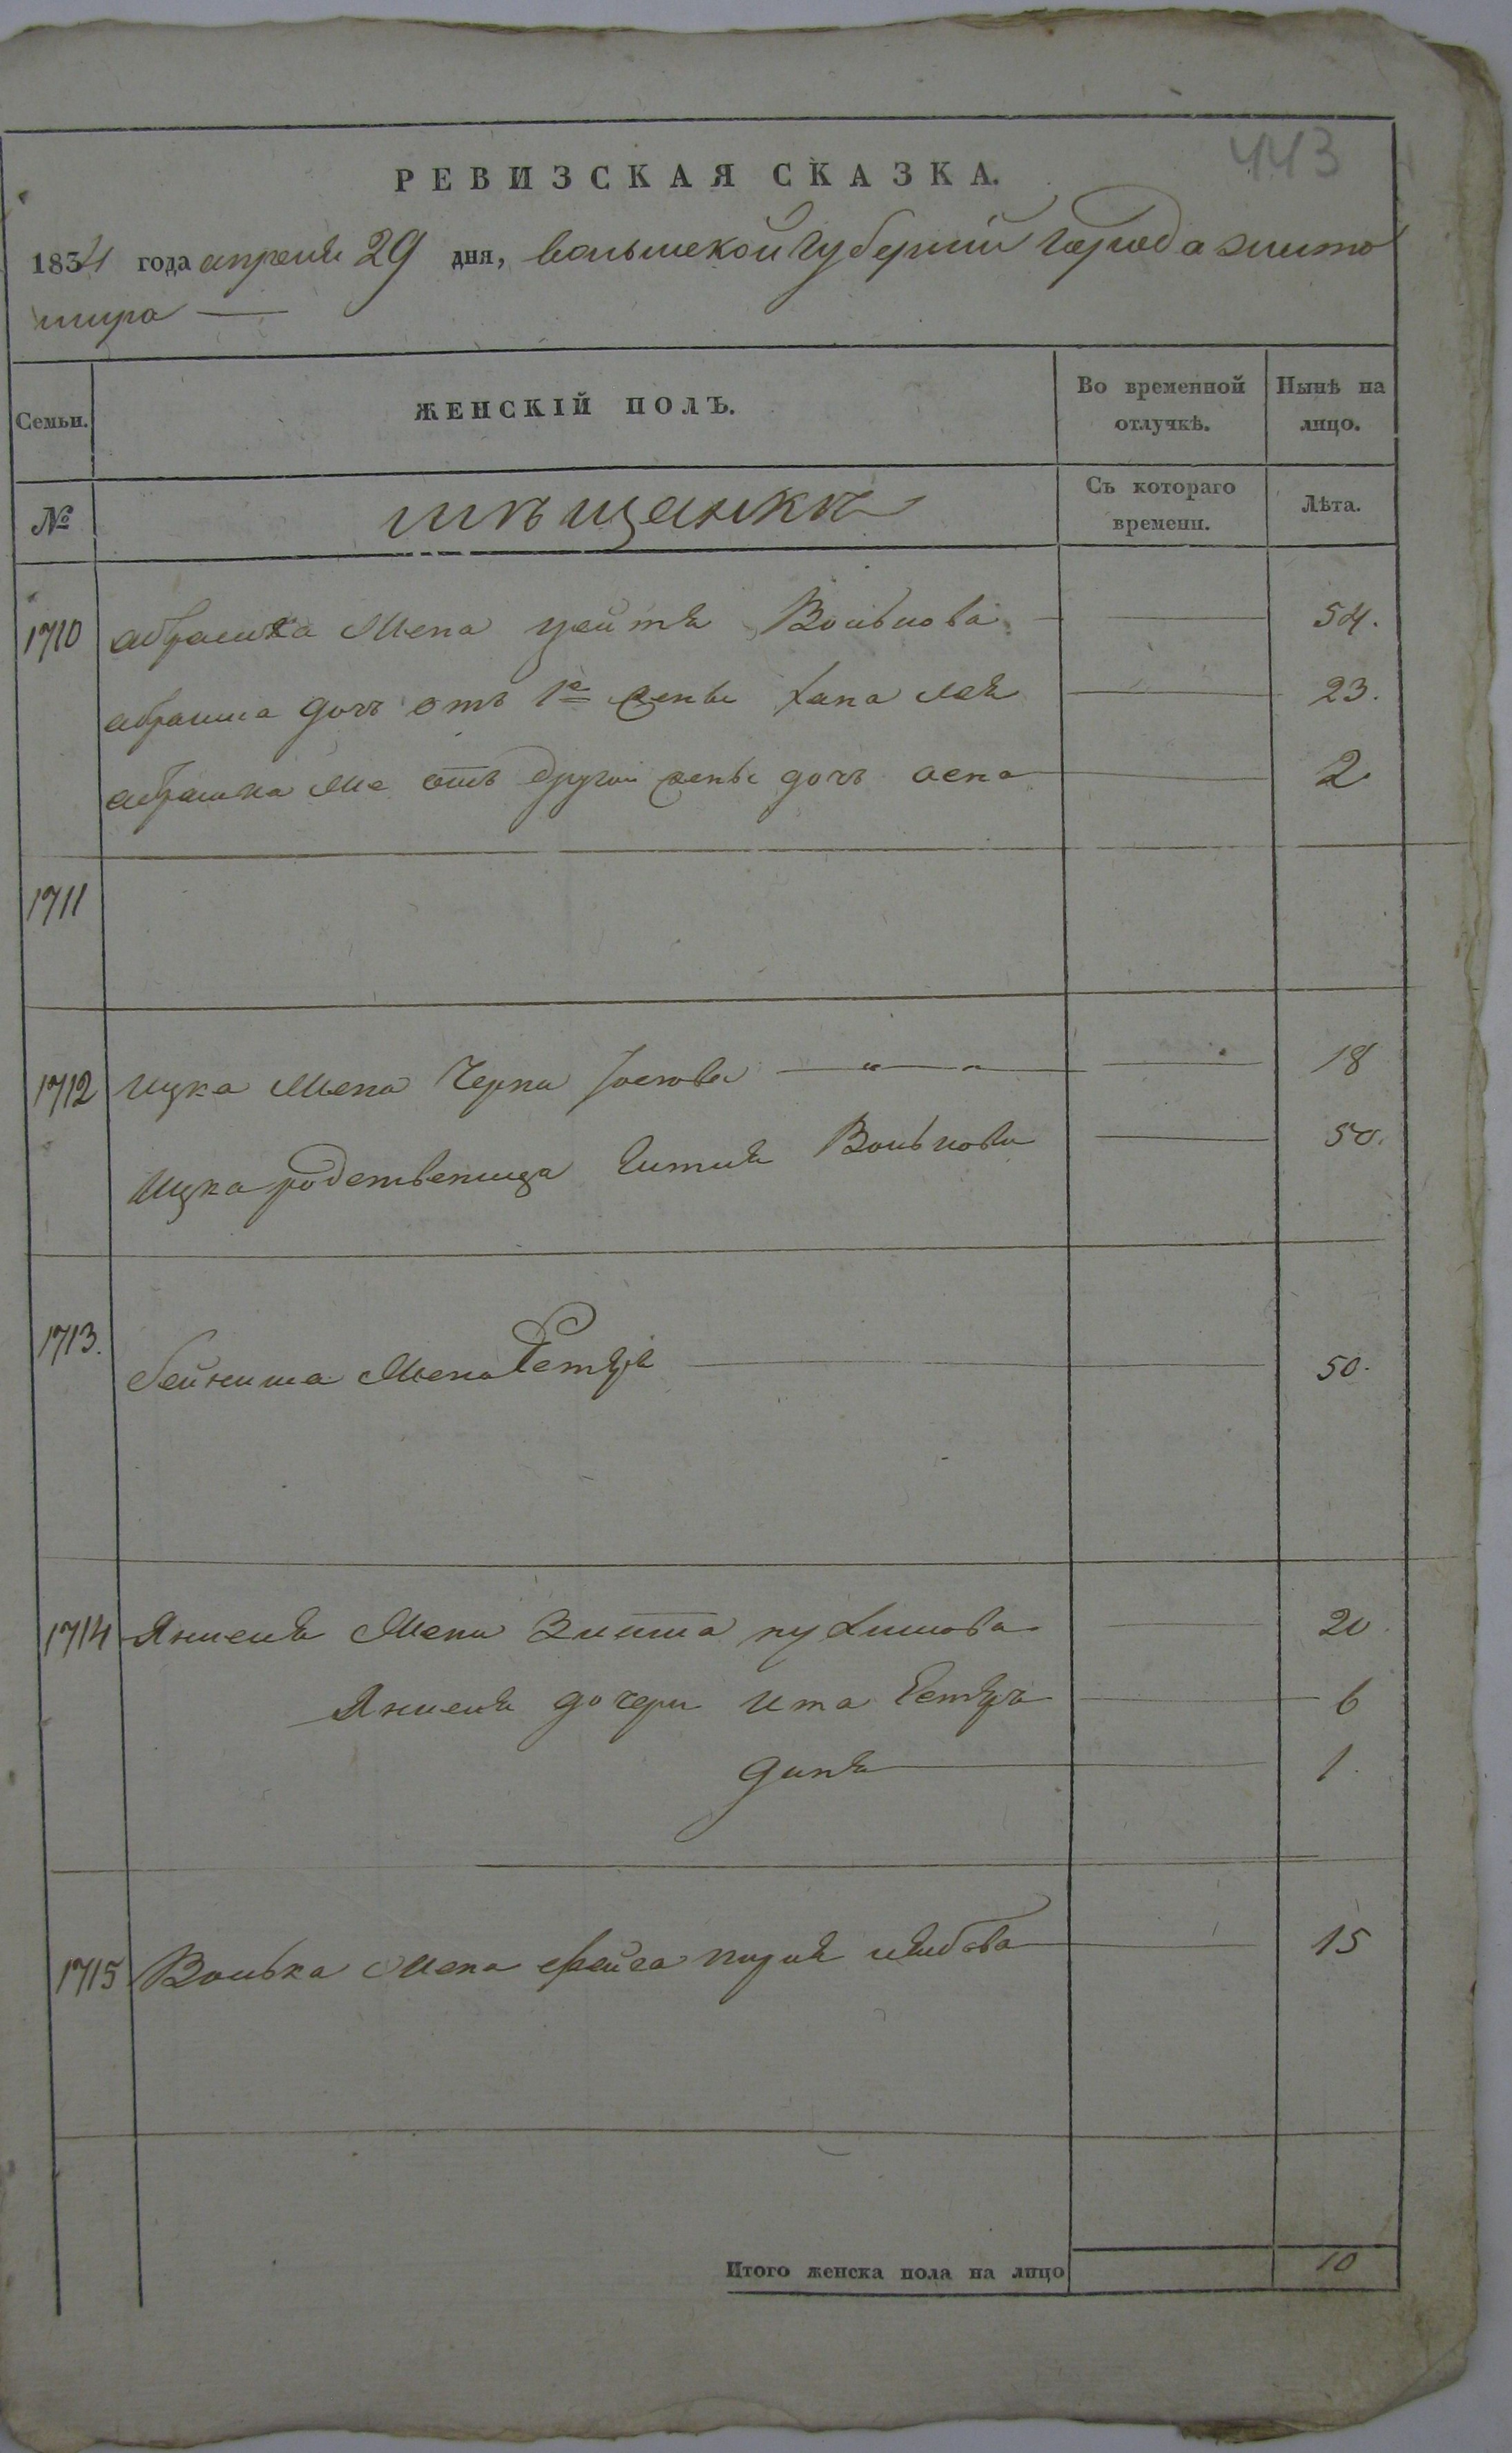 443
РЕВИЗСКАЯ СКАЗКА.
1834 года апреля 29 дня, волынской губернии города жито
мира —
Семьи. ЖЕНСКІЙ ПОЛЪ. Во временной отлучкѣ. Нынѣ на лицо.
№ мѣщанкѣ Съ котораго времени. Лѣта.
1710 абрамка жена Волькова 54.
абрамка дочь отъ 1й жены хана лея 23.
абрамка отъ другой жены дочь 2
1711
1712 Ицка жена Черна Іоскова 18
Ицка родственица Волькова 50.
1713. бейниша жена Естеръ 50.
1714 Янкеля жена Злота 20
Янкеля дочери Ита Естеръ 6
1
1715 Волька жена фейга 15
Итого женска пола на лицо 10